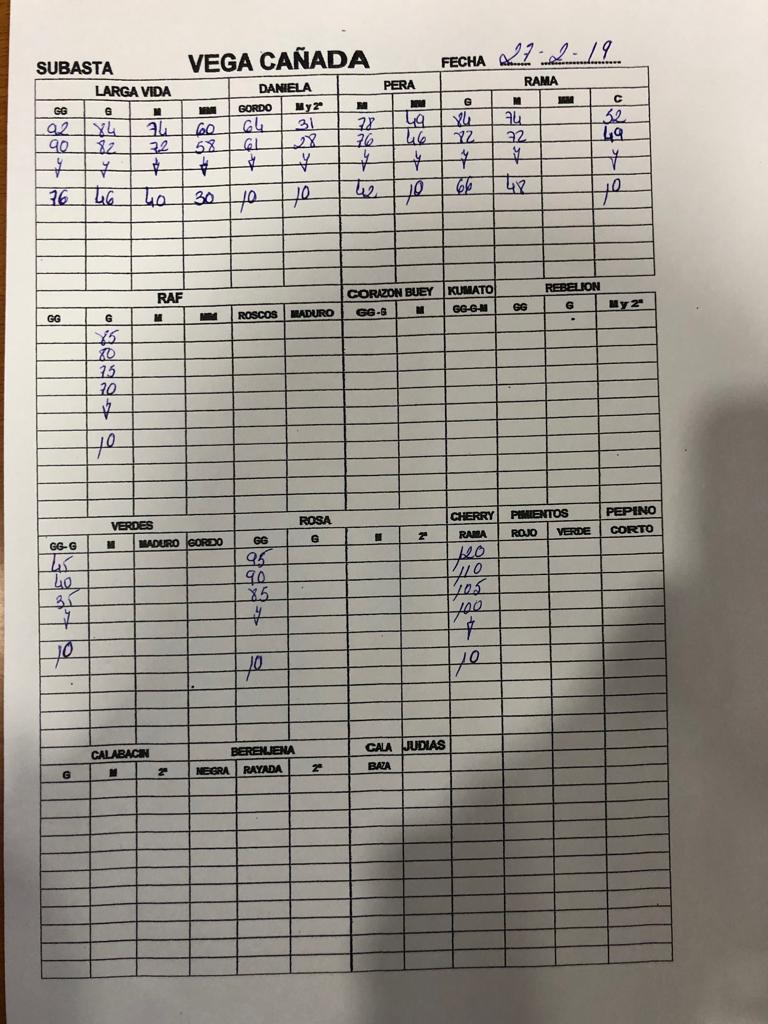 SUBASTA VEGA CAÑADA FECHA 27-2-19
LARGA VIDA DANIELA PERA RAMA
GG G M MM GORDO M y 2ª M MM G M MM C
92 84 74 60 64 31 78 49 84 74 52
90 82 72 58 61 28 76 46 82 72 49
76 46 40 30 10 10 42 10 66 48 10
RAF CORAZON BUEY KUMATO REBELION
GG G M MM ROSCOS MADURO GG-G M GG-G-M GG G M y 2ª
85
80
75
70
10
VERDES ROSA CHERRY PIMIENTOS PEPINO
GG-G M MADURO GORDO GG G M 2ª RAMA ROJO VERDE CORTO
45 95 120
40 90 110
35 85 105
100
10 10 10
CALABACIN BERENJENA CALA JUDIAS
G M 2ª NEGRA RAYADA 2ª BAZA